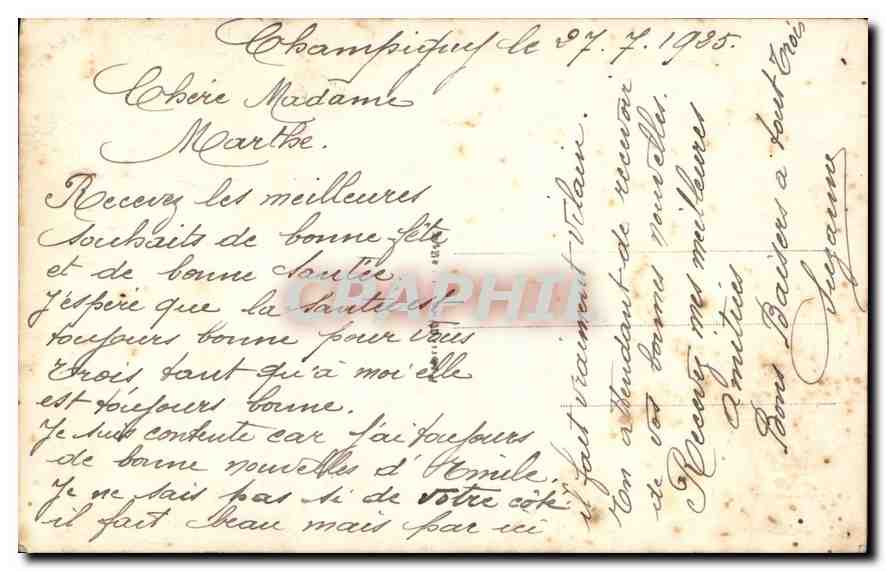 Champigny le 27.7.1925.
Chère Madame
Marthe.
Recevez les meilleures
souhaits de bonne fête
et de bonne santée.
J'espère que la santé est
toujours bonne pour vous
trois tant qu'à moi elle
est toujours bonne.
Je suis contente car j'ai toujours
de bonne nouvelles d'Emile.
Je ne sais pas si de votre côté
il fait beau mais par ici
il fait vraiment vilain.
En attendant de recevoir
de vos bonnes nouvelles.
Recevez mes meilleures
amitiés
Bons Baisers a tout trois
Suzanne
CPAPHIL